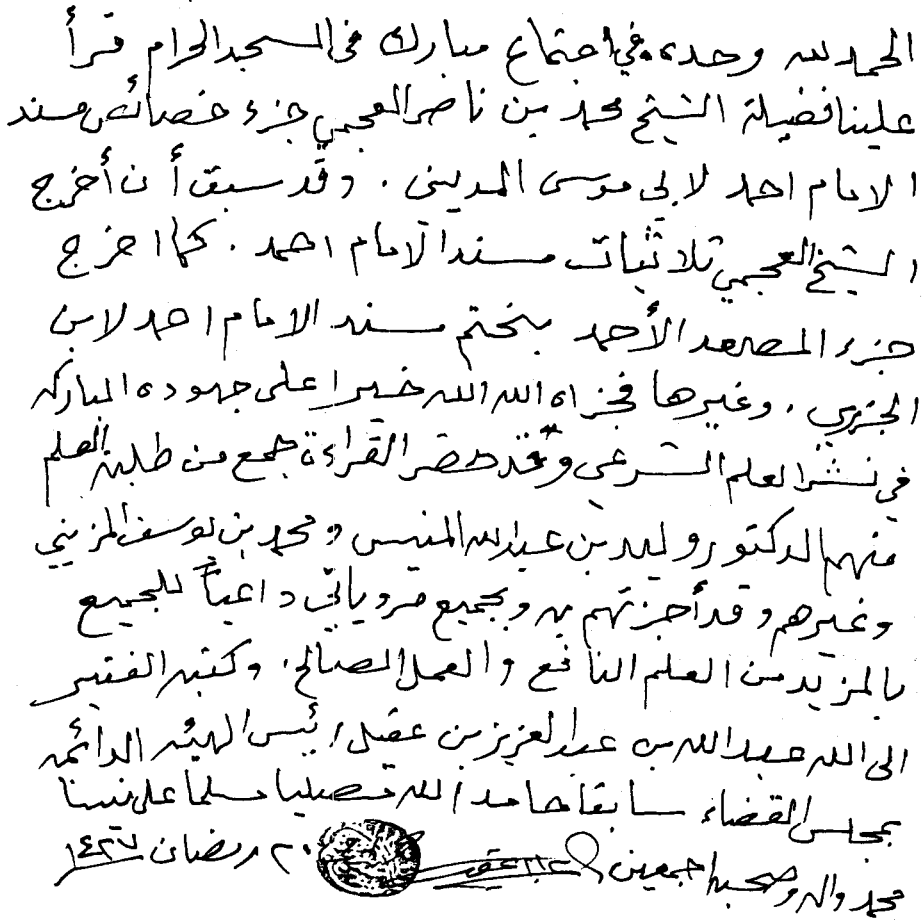 الحمد لله وحده، في اجتماع مبارك في المسجد الحرام قرأ
علينا فضيلة الشيخ محمد بن ناصر العجمي جزء خصائص مسند
الامام احمد لابي موسى المديني . وقد سبق أن أخرج
الشيخ العجمي ثلاثيات مسند الامام احمد . كما اخرج
جزء المصعد الأحمد بختم مسند الامام احمد لابن
الجزري . وغيرها فجزاه الله الله خيرا على جهوده المباركه
في نشر العلم الشرعي وقد حضر القراءة جمع من طلبة العلم
منهم الدكتور وليد بن عبد الله المنيس ومحمد بن يوسف المزيني
وغيرهم وقد أجزتهم به وبجميع مروياتي داعياً للجميع
بالمزيد من العلم النافع والعمل الصالح. وكتبه الفقير
الى الله عبد الله بن عبد العزيز بن عقيل رئيس الهيئه الدائمه
بمجلس القضاء سابقا حامدا لله مصليا مسلما على نبينا
محمد واله وصحبه اجمعين ٢٠ رمضان ١٤٢٧